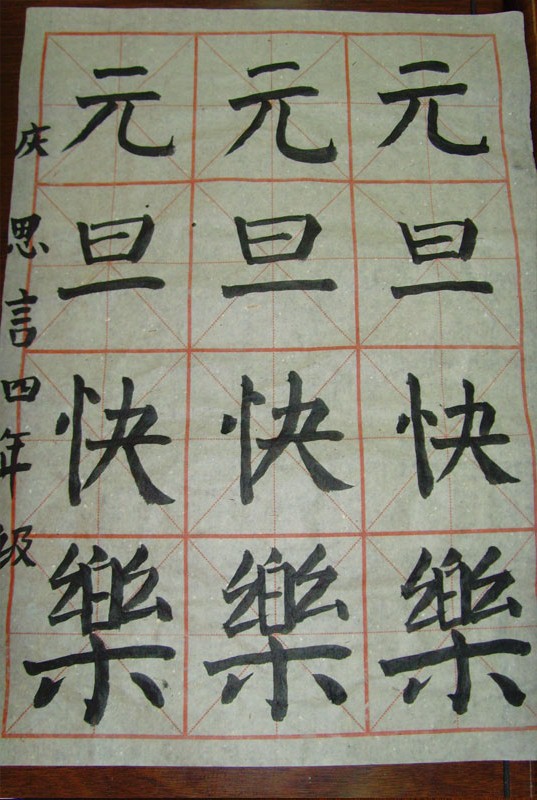 元旦快樂
元旦快樂
元旦快樂
庆思言四年级